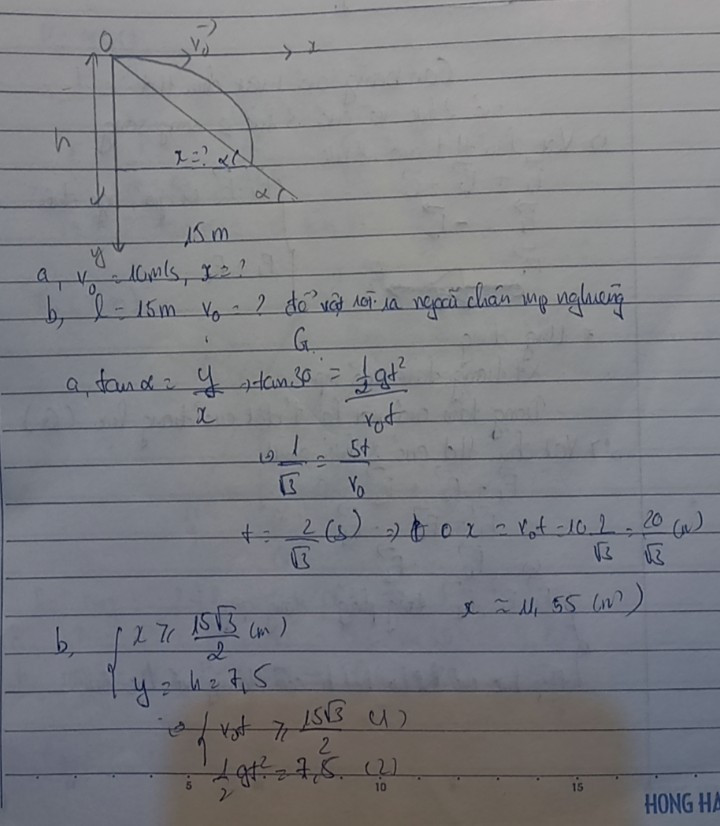 O v₀ x
h
x = ? α
α
y 15m
a, v₀ = 10m/s, x = ?
b, l = 15m v₀ = ? để vật rơi ra ngoài chân mp nghiêng
G
a, tan α = y/x → tan 30 = (1/2 gt²)/(v₀t)
⇔ 1/√3 = 5t/v₀
t = 2/√3 (s) ⇒ x = v₀t = 10. 2/√3 = 20/√3 (m)
x ≈ 11,55 (m)
b, { x ≥ 15√3/2 (m)
y = h = 7,5
⇔ { v₀t ≥ 15√3/2 (1)
1/2 gt² = 7,5 (2)
5 10 15
HONG HA